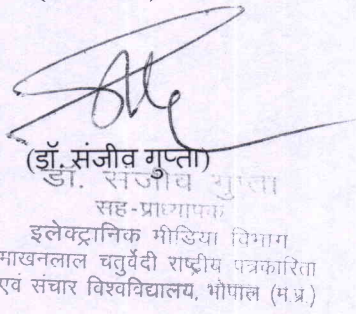 (डॉ. संजीव गुप्ता)
डॉ. संजीव गुप्ता
सह-प्राध्यापक
इलेक्ट्रानिक मीडिया विभाग
माखनलाल चतुर्वेदी राष्ट्रीय पत्रकारिता
एवं संचार विश्वविद्यालय, भोपाल (म.प्र.)